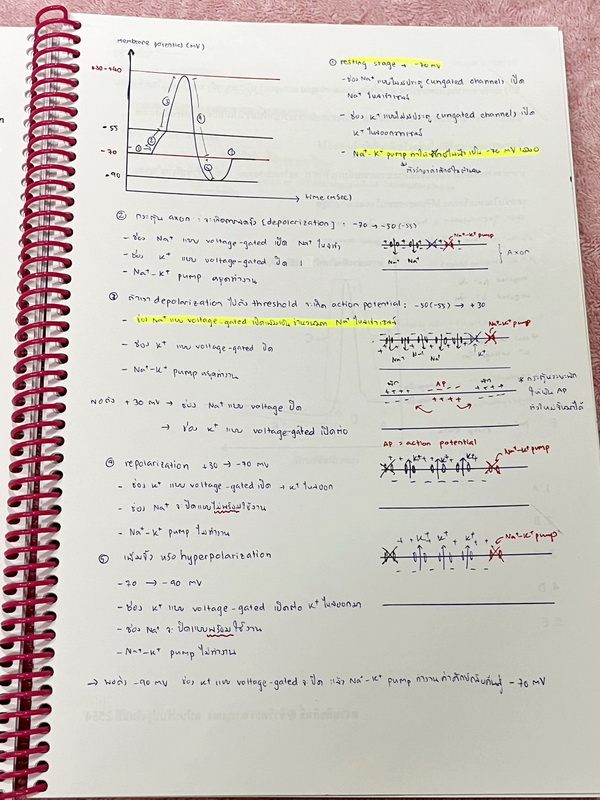 membrane potential (mV)
+30-+40
-55
-70
-90
time (msec)
① resting stage → -70 mV
- ช่อง Na⁺ แบบไม่มีประตู (ungated channel) เปิด
Na⁺ ไหลเข้าเซลล์
- ช่อง K⁺ แบบไม่มีประตู (ungated channel) เปิด
K⁺ ไหลออกจากเซลล์
- Na⁺-K⁺ pump เป็น -70 mV
② กระตุ้น axon : [depolarization] : -70 → -50 (-55)
- ช่อง Na⁺ แบบ voltage-gated เปิด Na⁺ ไหลเข้า
- ช่อง K⁺ แบบ voltage-gated ปิด
- Na⁺-K⁺ pump หยุดทำงาน
Na⁺-K⁺ pump
Na⁺ Na⁺
Axon
③ ถ้าเรา depolarization ไปถึง threshold จะเกิด action potential : -50(-55) → +30
- ช่อง Na⁺ แบบ voltage-gated เปิดเพิ่มขึ้น จำนวนมาก Na⁺ ไหลเข้าเซลล์
- ช่อง K⁺ แบบ voltage-gated ปิด
- Na⁺-K⁺ pump หยุดทำงาน
Na⁺-K⁺ pump
Na⁺ Na⁺ Na⁺ K⁺
พัก AP พัก
พอถึง +30 mV → ช่อง Na⁺ แบบ voltage ปิด
→ ช่อง K⁺ แบบ voltage-gated เปิดต่อ
AP = action potential
④ repolarization +30 → -70 mV
- ช่อง K⁺ แบบ voltage-gated เปิด → K⁺ ไหลออก
- ช่อง Na⁺ จะปิดแบบไม่พร้อมใช้งาน
- Na⁺-K⁺ pump ไม่ทำงาน
K⁺ K⁺ K⁺
Na⁺-K⁺ pump
⑤ เพิ่มขั้ว หรือ hyperpolarization
-70 → -90 mV
- ช่อง K⁺ แบบ voltage-gated เปิดต่อ K⁺ ไหลออกมา
- ช่อง Na⁺ จะปิดแบบพร้อมใช้งาน
- Na⁺-K⁺ pump ไม่ทำงาน
K⁺ K⁺ K⁺
Na⁺-K⁺ pump
→ พอถึง -90 mV ช่อง K⁺ แบบ voltage-gated จะปิด แล้ว Na⁺-K⁺ pump ทำงาน ค่าศักย์กลับคืนสู่ -70 mV